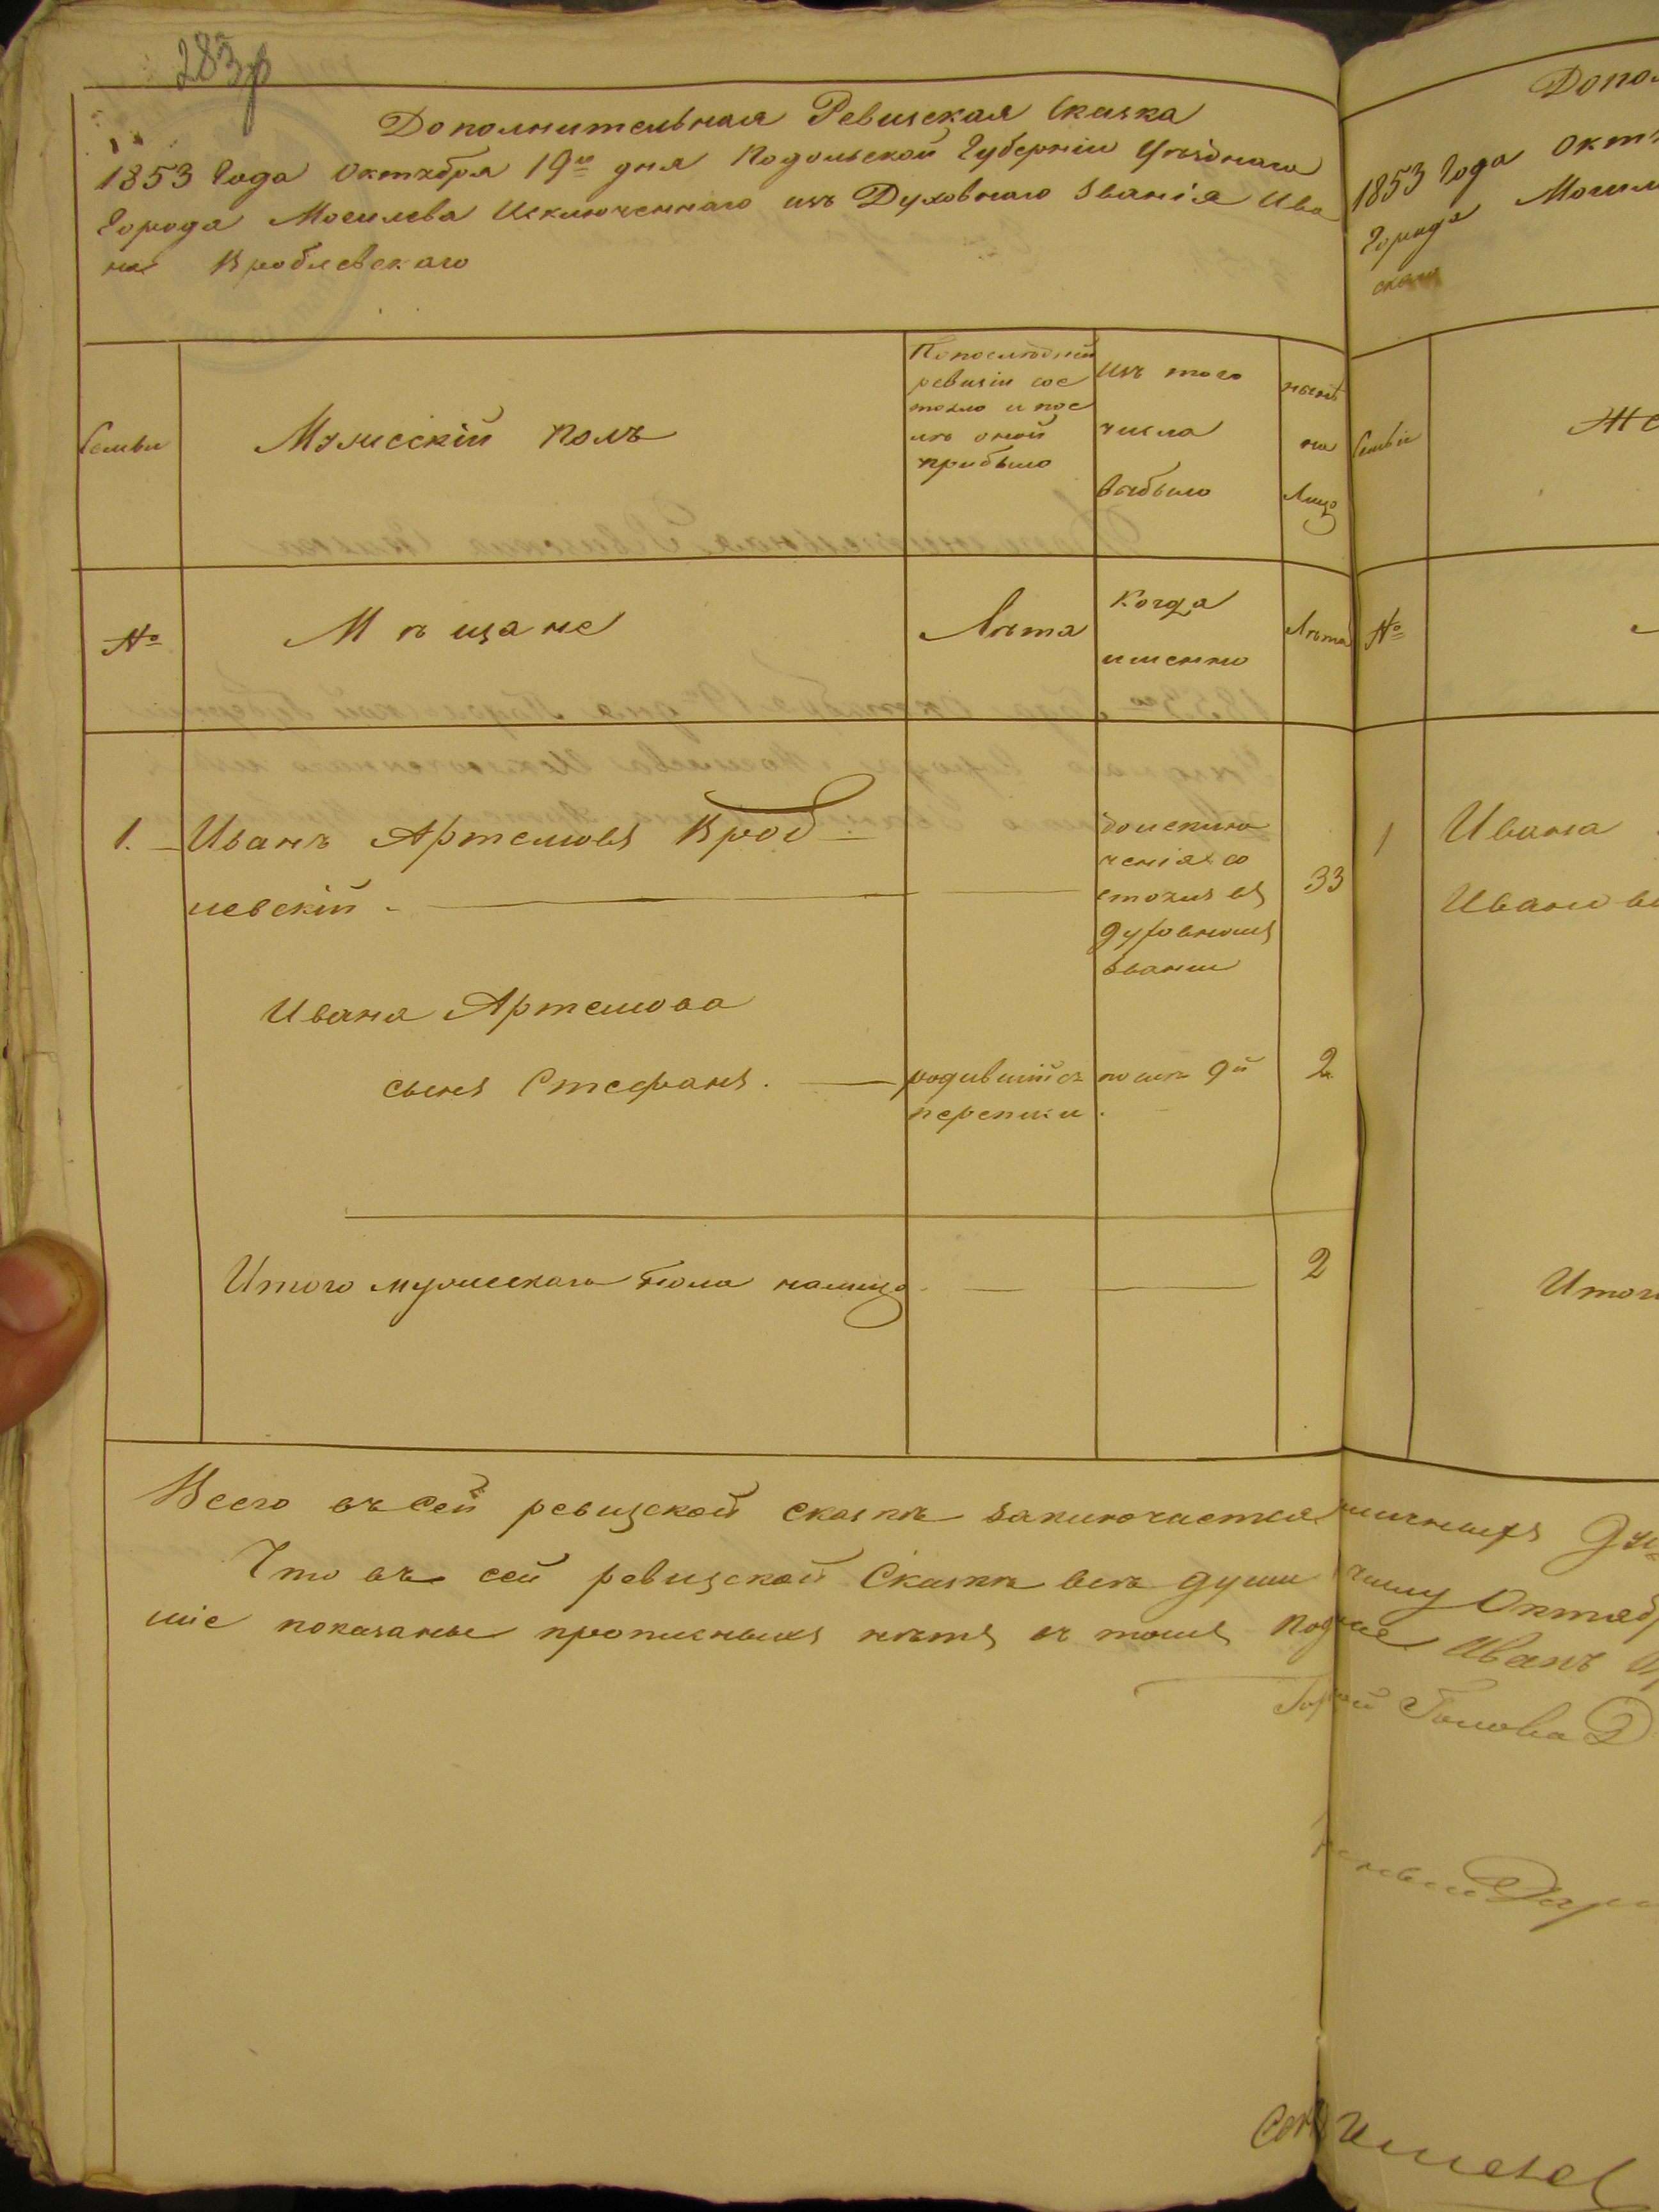 283
Дополнительная Ревизская Сказка
1853 Года Октября 19го дня Подольской Губерніи Уѣзднаго
Города Могилева Исключеннаго изъ Духовнаго Званія Ива
на Вроблевскаго
Семьи
Мужескій полъ
По последней
ревизіи сос
тояло и пос
лѣ оной
прибыло
изъ того
числа
выбыло
нынѣ
на
Лицо
№
Мѣщане
Лѣта
Когда
именно
Лѣта
1.
Иванъ Артемовъ Вроб
левскій
до исклю
ченія со
стоялъ въ
духовномъ
званіи
33
Ивана Артемова
сынъ Стефанъ.
родившійся послѣ 9й
переписи.
2
Итого мужескаго пола налицо
2
Всего въ сей ревизской сказкѣ заключается
Что въ сей ревизской Сказкѣ всѣ души
шіе показаны прописныхъ нѣтъ въ томъ
Допол
1853 Года Октя
Города Могил
скаго
Семьи
Же
№
1
Ивана
Иванова
Итого
наличныхъ душ
числу Октяб
Иванъ
Голова